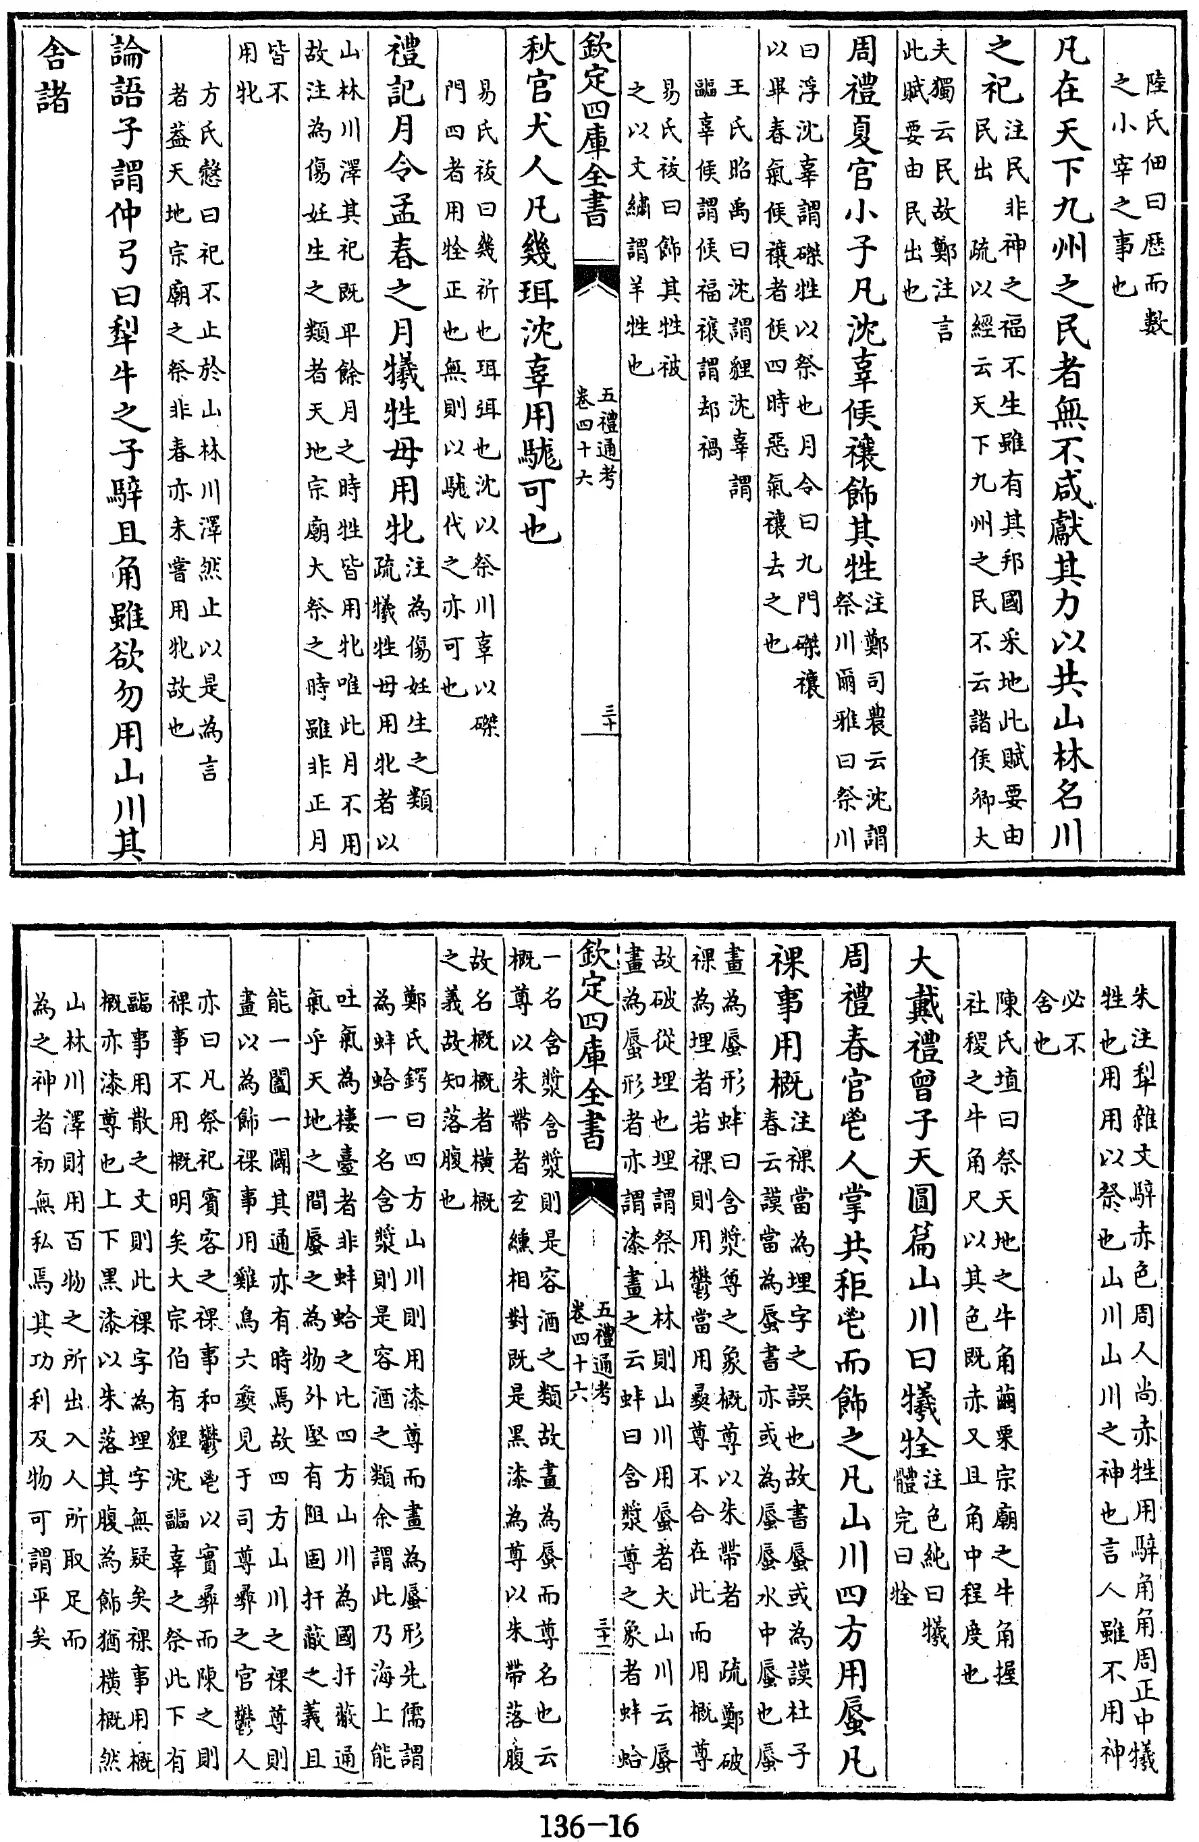 陸氏佃曰歷而數
之小宰之事也
凡在天下九州之民者無不咸獻其力以共山林名川
之祀注民非神之福不生雖有其邦國采地此賦要由
民出 疏以經云天下九州之民不云諸侯卿大
夫獨云民故鄭注言
此賦要由民出也
周禮夏官小子凡沈辜侯禳飾其牲注鄭司農云沈謂
祭川爾雅曰祭川
曰浮沈辜謂磔牲以祭也月令曰九門磔禳
以畢春氣候禳者候四時惡氣禳去之也
王氏昭禹曰沈謂貍沈辜謂
疈辜候謂候福禳謂却禍
易氏祓曰飾其牲被
之以文繡謂羊牲也
欽定四庫全書
五禮通考
卷四十六
三十
秋官犬人凡幾珥沈辜用駹可也
易氏祓曰幾祈也珥弭也沈以祭川辜以磔
門四者用牷正也無則以駹代之亦可也
禮記月令孟春之月犧牲毋用牝注為傷妊生之類
疏犧牲毋用牝者以
山林川澤其祀既卑餘月之時牲皆用牝唯此月不用
故注為傷妊生之類者天地宗廟大祭之時雖非正月
皆不
用牝
方氏慤曰祀不止於山林川澤然止以是為言
者蓋天地宗廟之祭非春亦未嘗用牝故也
論語子謂仲弓曰犁牛之子騂且角雖欲勿用山川其
舍諸
朱注犁雜文騂赤色周人尚赤牲用騂角角周正中犧
牲也用用以祭也山川山川之神也言人雖不用神
必不
舍也
陳氏埴曰祭天地之牛角繭栗宗廟之牛角握
社稷之牛角尺以其色既赤又且角中程度也
大戴禮曾子天圓篇山川曰犧牷注色純曰犧
體完曰牷
周禮春官鬯人掌共秬鬯而飾之凡山川四方用蜃凡
祼事用概注祼當為埋字之誤也故書蜃或為謨杜子
春云謨當為蜃書亦或為蜃蜃水中蜃也蜃
畫為蜃形蚌曰含漿尊之象概尊以朱帶者 疏鄭破
祼為埋者若祼則用鬱當用彝尊不合在此而用概尊
故破從埋也埋謂祭山林則山川用蜃者大山川云蜃
畫為蜃形者亦謂漆畫之云蚌曰含漿尊之象者蚌蛤
欽定四庫全書
五禮通考
卷四十六
三十一
一名含漿含漿則是容酒之類故畫為蜃而尊名也云
概尊以朱帶者玄纁相對既是黑漆為尊以朱帶落腹
故名概概者橫概
之義故知落腹也
鄭氏鍔曰四方山川則用漆尊而畫為蜃形先儒謂
為蚌蛤一名含漿則是容酒之類余謂此乃海上能
吐氣為樓臺者非蚌蛤之比四方山川為國扞蔽通
氣乎天地之間蜃之為物外堅有阻固扞蔽之義且
能一闔一闢其通亦有時焉故四方山川之祼尊則
畫以為飾祼事用雞鳥六彝見于司尊彝之官鬱人
亦曰凡祭祀賓客之祼事和鬱鬯以實彝而陳之則
祼事不用概明矣大宗伯有貍沈疈辜之祭此下有
疈事用散之文則此祼字為埋字無疑矣祼事用概
概亦漆尊也上下黑漆以朱落其腹為飾猶橫概然
山林川澤財用百物之所出入人所取足而
為之神者初無私焉其功利及物可謂平矣
136-16